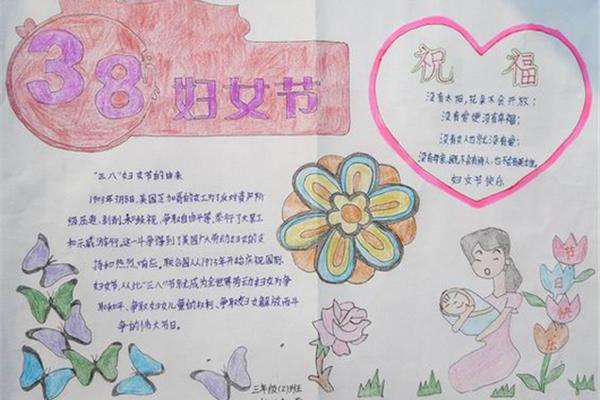 38
妇女节
祝福
没有太阳,花朵不会开放;
没有爱便没有幸福;
没有女人也就没有爱;
没有母亲,既不会有诗人,也不会有英雄。
妇女节快乐
"三八"妇女节的由来
1909年3月8日,美国芝加哥的女工为了反对资产阶
级压迫、剥削和歧视,争取自由平等,举行了大罢工
和示威游行,这一斗争得到了美国广大劳动妇女的支
持和热烈响应。联合国从1975年开始庆祝国际
妇女节,从此"三八"节就成为全世界劳动妇女为争
取和平、争取妇女儿童的权利、争取妇女解放而斗
争的伟大节日。
节
日
快
乐
三年级(2)班